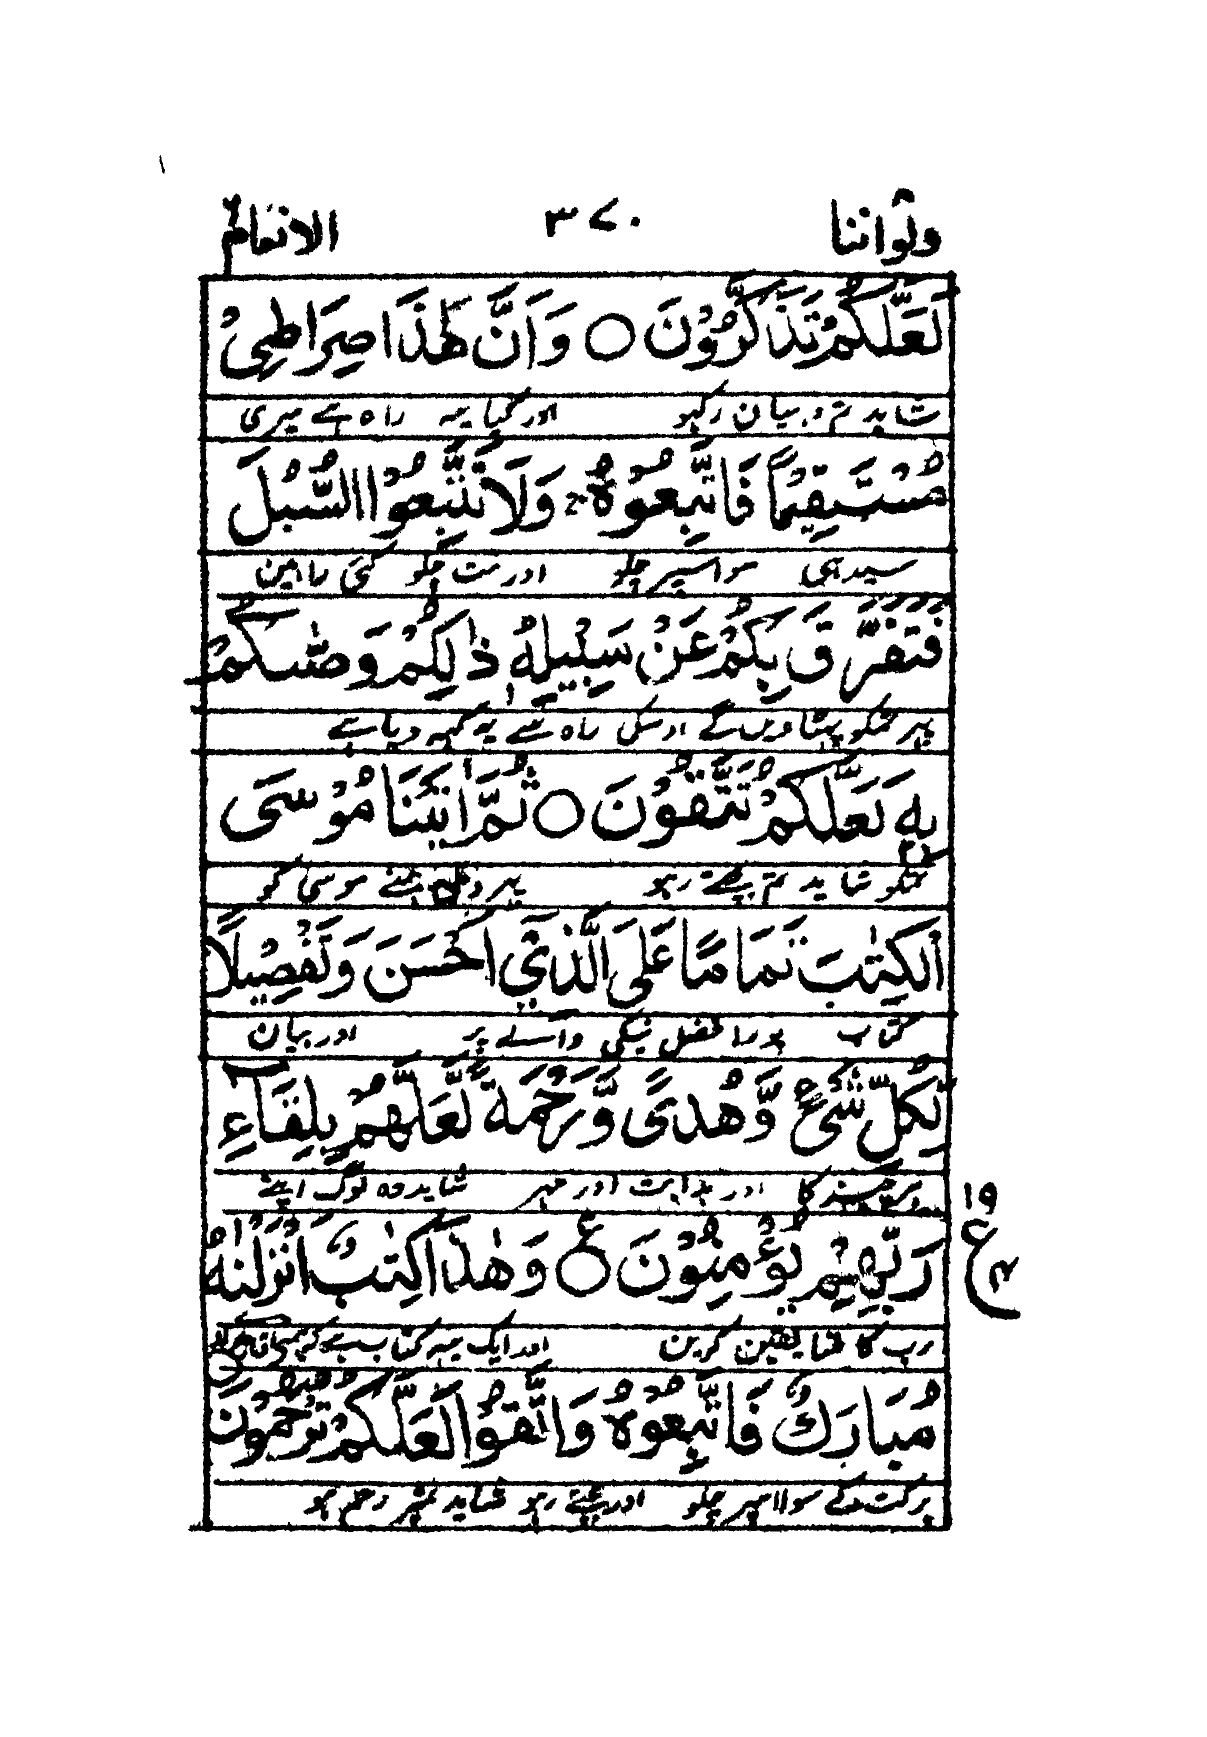 ولواننا ٣٧٠ الانعام
لَعَلَّكُمْ تَذَكَّرُوْنَ ○ وَاَنَّ هٰذَا صِرَاطِيْ
شايد تم دہیان رکہو اور کہا یہہ راہ ہے میری
مُسْتَقِيْمًا فَاتَّبِعُوْهُ ۚ وَلَا تَتَّبِعُوا السُّبُلَ
سیدہی سو اسپر چلو اور مت چلو کئی راہین
فَتَفَرَّقَ بِكُمْ عَنْ سَبِيْلِهٖ ذٰلِكُمْ وَصّٰىكُمْ
پہر تمکو پہٹا دیں گے اوسکی راہ سے یہ کہہ دیا ہے
بِهٖ لَعَلَّكُمْ تَتَّقُوْنَ ○ ثُمَّ اٰتَيْنَا مُوْسَى
تمکو شاید تم بچتے رہو پہر دی ہمنے موسی کو
الْكِتٰبَ تَمَامًا عَلَى الَّذِيْٓ اَحْسَنَ وَتَفْصِيْلًا
کتاب پورا فضل نیکی والے پر اور بیان
لِّكُلِّ شَيْءٍ وَّهُدًى وَّرَحْمَةً لَّعَلَّهُمْ بِلِقَآءِ
ہر چیز کا اور ہدایت اور مہر شاید وہ لوگ اپنے
رَبِّهِمْ يُؤْمِنُوْنَ ○ ع وَهٰذَا كِتٰبٌ اَنْزَلْنٰهُ
١٩
ع
رب کا ملنا یقین کرین اور ایک یہہ کتاب ہے کہ ہمنی
مُبَارَكٌ فَاتَّبِعُوْهُ وَاتَّقُوْا لَعَلَّكُمْ تُرْحَمُوْنَ
برکت کے سو اسپر چلو اور بچتے رہو شاید تمپر رحم ہو